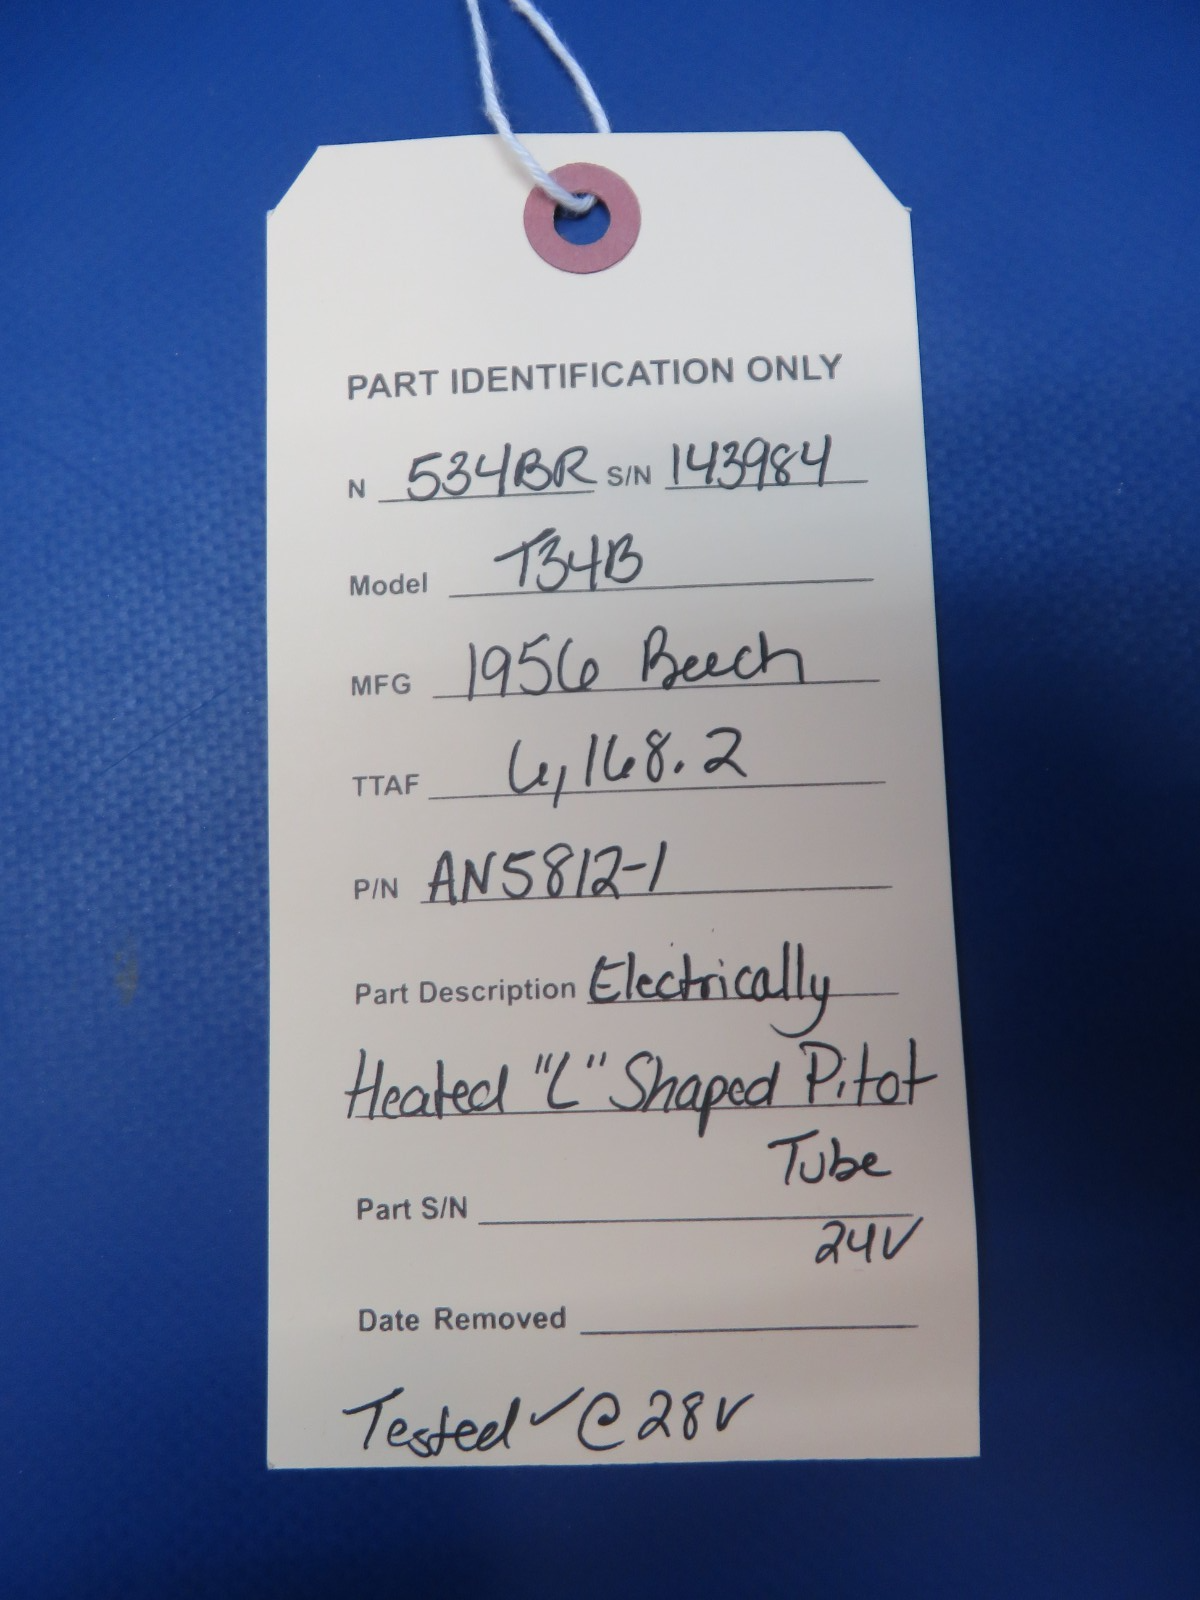 PART IDENTIFICATION ONLY
N 534BR S/N 143984
Model T34B
MFG 1956 Beech
TTAF 6,168.2
P/N AN5812-1
Part Description Electrically
Heated "L" Shaped Pitot
Tube
Part S/N
24V
Date Removed
Tested ✓ @ 28V